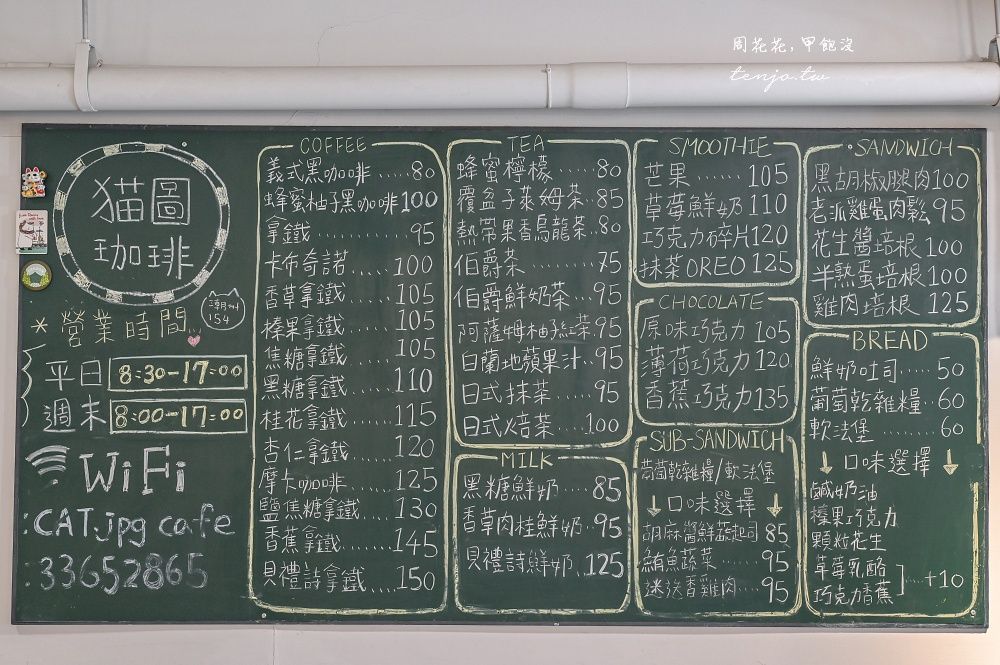 周花花,甲飽沒
tenjo.tw
猫圖
珈琲
潮州
154
*營業時間
平日 8:30-17:00
週末 8:00-17:00
WiFi
:CAT.jpg cafe
:33652865
COFFEE
義式黑咖啡.....80
蜂蜜柚子黑咖啡100
拿鐵..........95
卡布奇諾.....100
香草拿鐵.....105
榛果拿鐵.....105
焦糖拿鐵.....105
黑糖拿鐵.....110
桂花拿鐵.....115
杏仁拿鐵.....120
摩卡咖啡.....125
鹽焦糖拿鐵....130
香蕉拿鐵.....145
貝禮詩拿鐵...150
TEA
蜂蜜檸檬.....80
覆盆子萊姆茶..85
熱帶果香烏龍茶..80
伯爵茶.......75
伯爵鮮奶茶...95
阿薩姆柚子紅茶95
白蘭地蘋果汁.95
日式抹茶.....95
日式焙茶....100
MILK
黑糖鮮奶....85
香草肉桂鮮奶.95
貝禮詩鮮奶.125
SMOOTHIE
芒果......105
草莓鮮奶110
巧克力碎片120
抹茶OREO125
CHOCOLATE
原味巧克力105
薄荷巧克力120
香蕉巧克力135
SUB-SANDWICH
葡萄乾雜糧/軟法堡
↓口味選擇↓
胡麻醬鮮蔬起司85
鮪魚蔬菜....95
迷迭香雞肉..95
SANDWICH
黑胡椒腿肉100
老派雞蛋肉鬆95
花生醬培根100
半熟蛋培根100
雞肉培根125
BREAD
鮮奶吐司....50
葡萄乾雜糧..60
軟法堡......60
↓口味選擇↓
鹹奶油
榛果巧克力
顆粒花生
草莓乳酪
巧克力香蕉]....+10